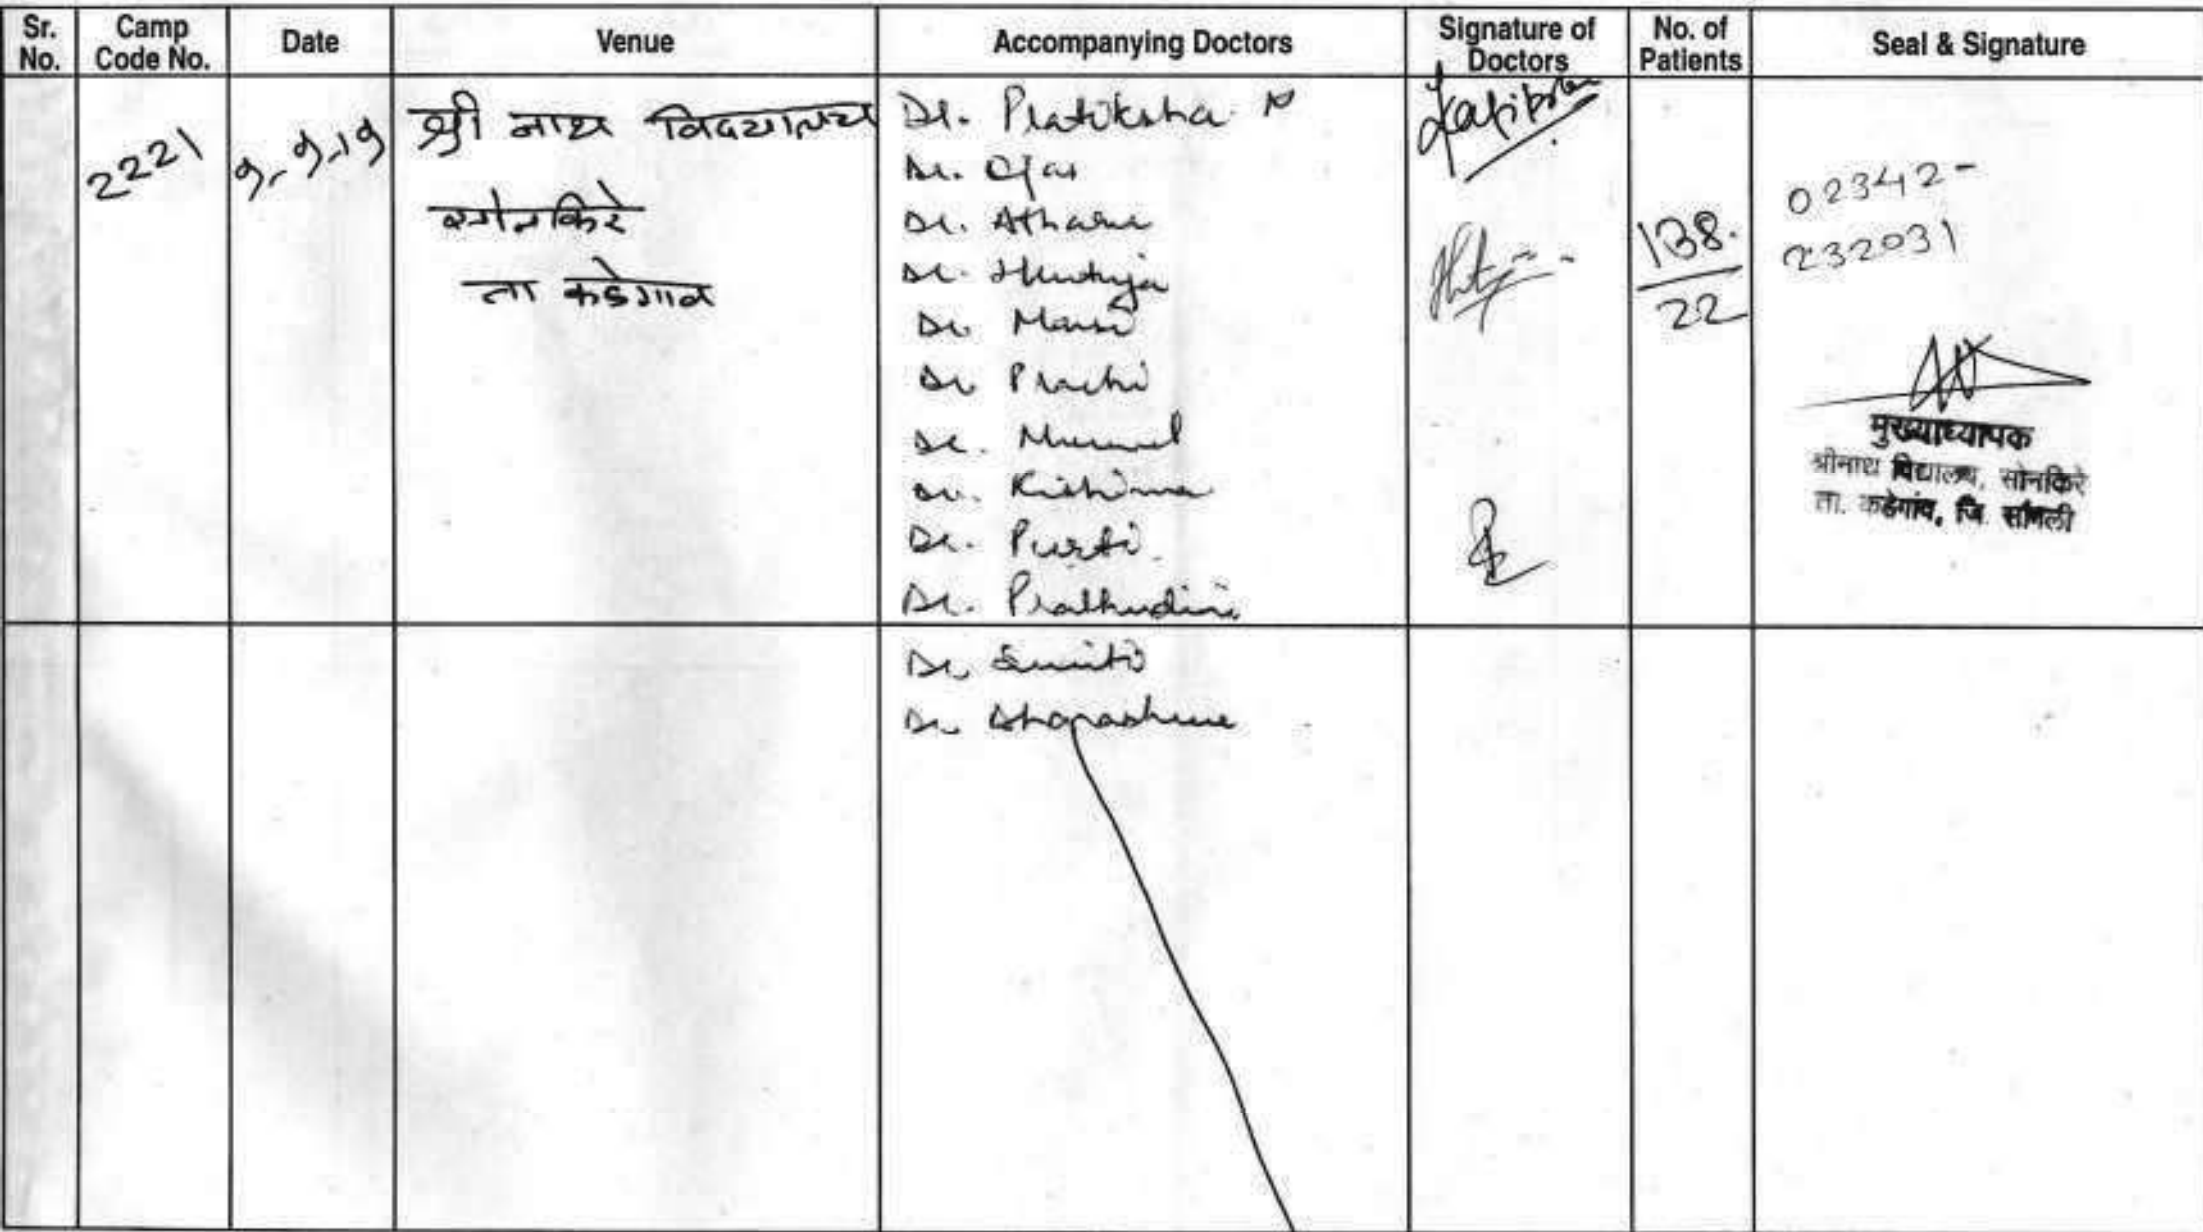 Sr. No.
Camp Code No.
Date
Venue
Accompanying Doctors
Signature of Doctors
No. of Patients
Seal & Signature
2221
9-9-19
श्री नाथ विदयालय
सोनकिरे
ता कडेगाव
Dr. Pratiksha N
Dr. Ojas
Dr. Atharva
Dr. Hrutuja
Dr. Mansi
Dr Prachi
Dr. Mrunal
Dr.
Dr. Purti
Dr.
138.
22
02342-
232031
मुख्याध्यापक
श्रीनाथ विद्यालय, सोनकिरे
ता. कडेगांव, जि. सांगली
Dr.
Dr.